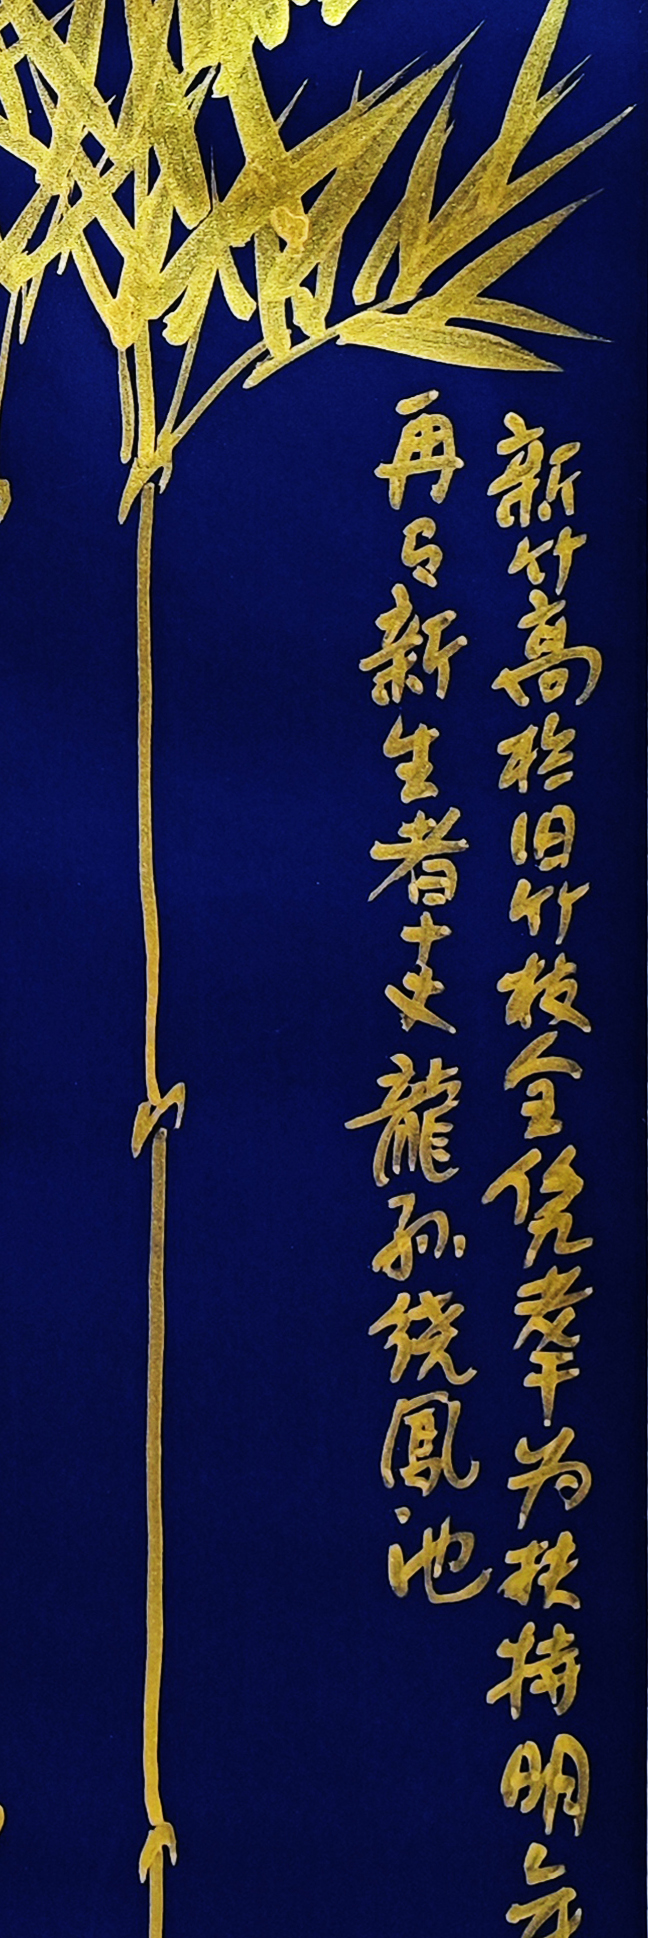 新竹高於旧竹枝全凭老干为扶持明年
再新生者十丈龍孙绕鳳池